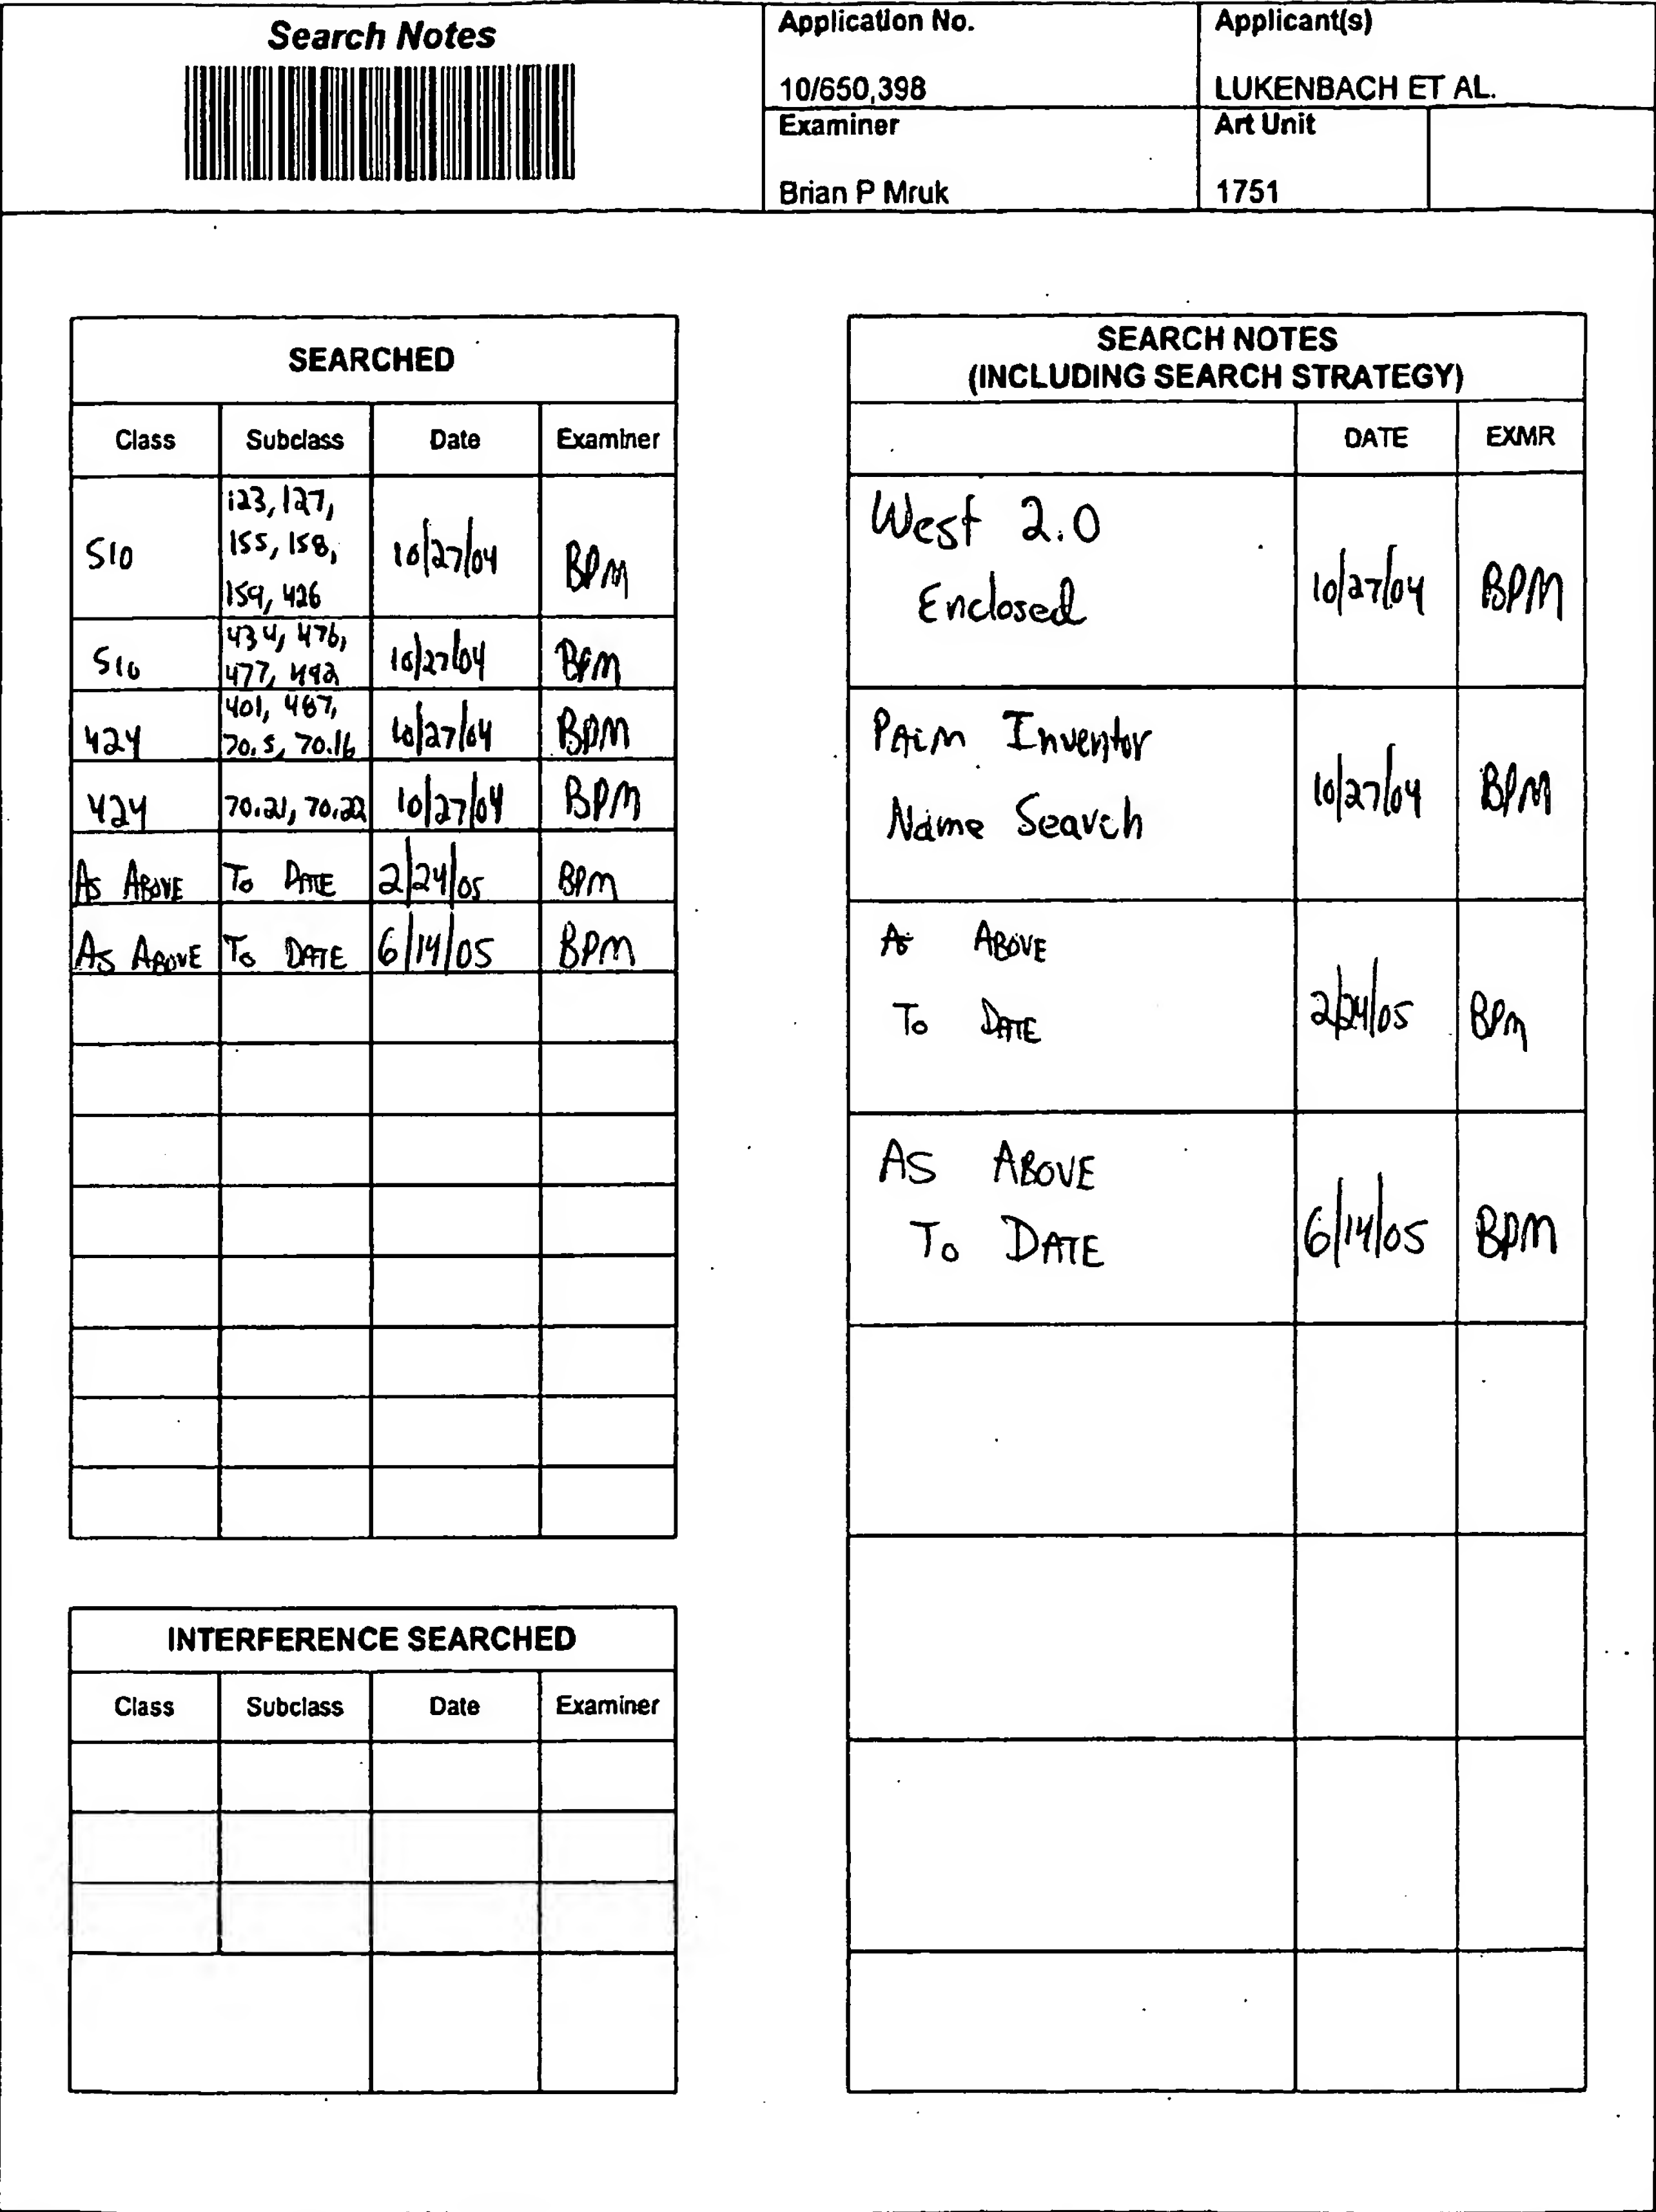 Search Notes
Application No.
10/650,398
Applicant(s)
LUKENBACH ET AL.
Examiner
Brian P Mruk
Art Unit
1751
SEARCHED
Class Subclass Date Examiner
510 123, 127, 155, 158, 159, 426 10/27/04 BPM
510 434, 476, 477, 492 10/27/04 BPM
424 401, 467, 70.5, 70.16 10/27/04 BPM
424 70.21, 70.22 10/27/04 BPM
AS ABOVE TO DATE 2/24/05 BPM
AS ABOVE TO DATE 6/14/05 BPM
INTERFERENCE SEARCHED
Class Subclass Date Examiner
SEARCH NOTES
(INCLUDING SEARCH STRATEGY)
DATE EXMR
West 2.0
Enclosed 10/27/04 BPM
PALM Inventor
Name Search 10/27/04 BPM
AS ABOVE
TO DATE 2/24/05 BPM
AS ABOVE
TO DATE 6/14/05 BPM